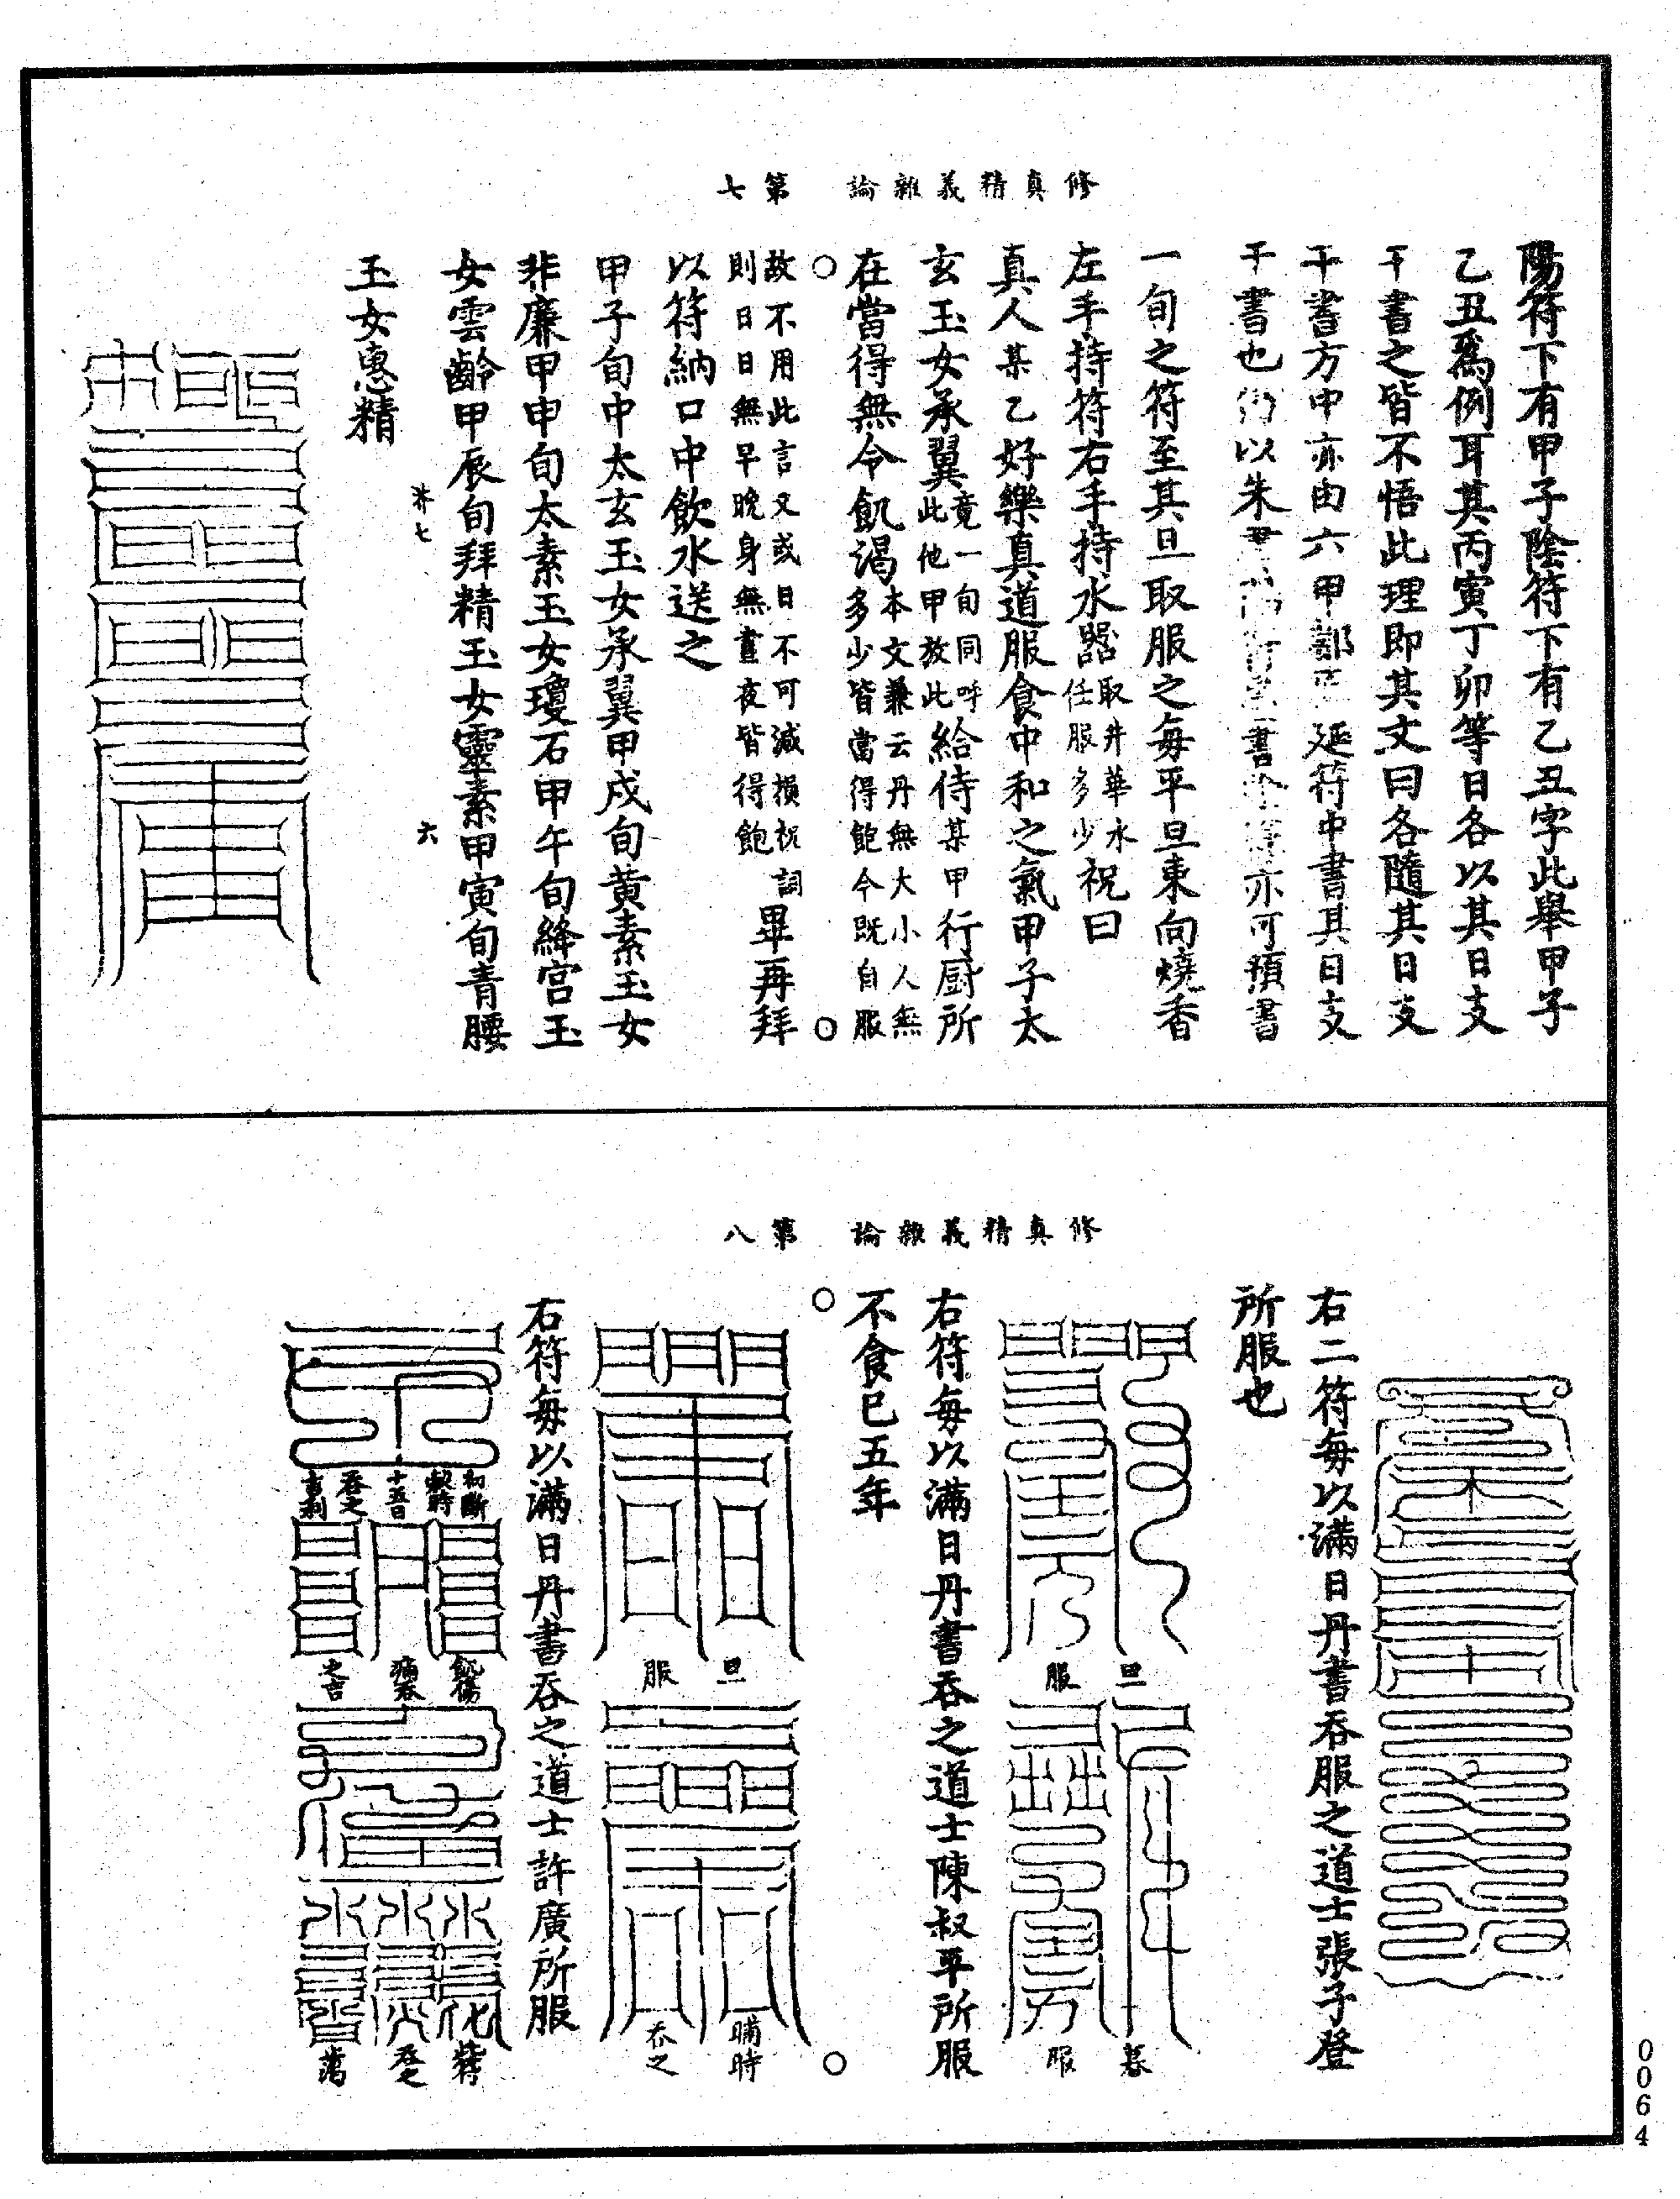 修真精義雜論　第七
陽符下有甲子陰符下有乙丑字此舉甲子
乙丑爲例耳其丙寅丁卯等日各以其日支
干書之皆不悟此理即其文曰各隨其日支
干書方中亦由六甲 延符中書其日支
干書也 以朱 書 亦可預書
一旬之符至其旦取服之每平旦東向燒香
左手持符右手持水器取井華水任服多少祝曰
真人某乙好樂真道服食中和之氣甲子太
玄玉女承翼竟一旬同呼此他甲放此給侍某甲行厨所
在當得無令飢渴本文兼云丹無大小人無多少皆當得飽今既自服
故不用此言又或日不可減損祝詞則日日無早晚身無晝夜皆得飽畢再拜
以符納口中飲水送之
甲子旬中太玄玉女承翼甲戌旬黃素玉女
非廉甲申旬太素玉女瓊石甲午旬絳宮玉
女雲齡甲辰旬拜精玉女靈素甲寅旬青腰
七　六
玉女惠精
修真精義雜論　第八
右二符每以滿日丹書吞服之道士張子登
所服也
旦服
暮服
右符每以滿日丹書吞之道士陳叔平所服
不食已五年
旦服
晡時吞之
右符每以滿日丹書吞之道士許廣所服
初斷穀時十五日吞之吉利
吞之
0064